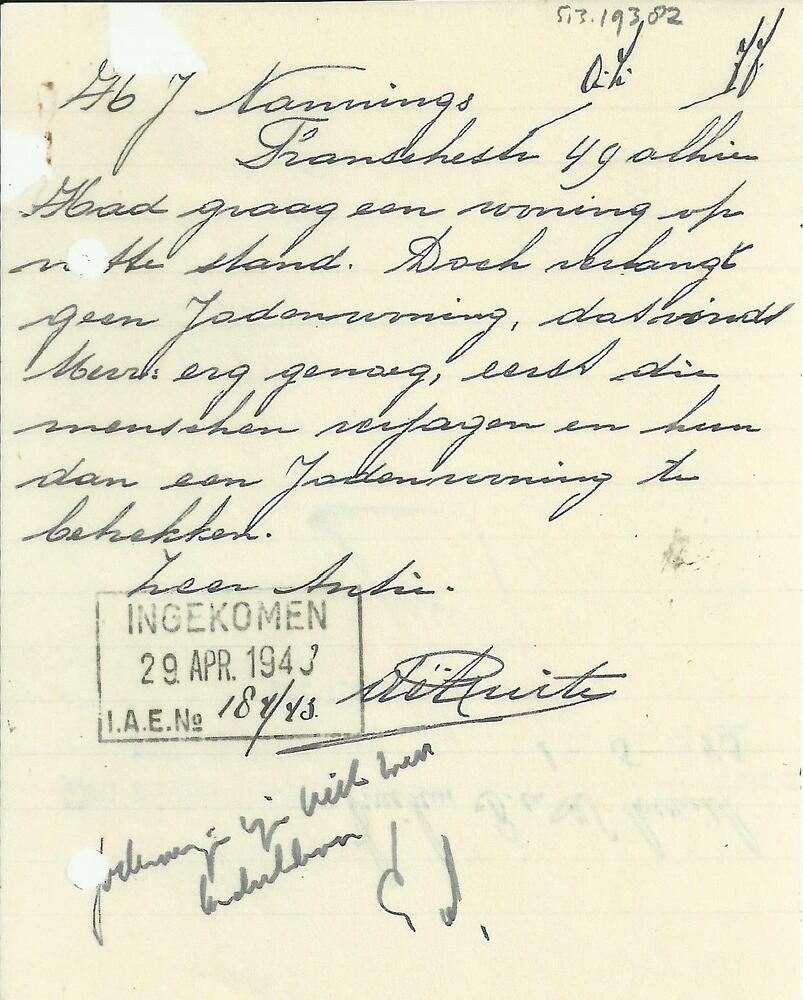 513.193.82
H J Nannings
Franschestr 49 alhier
Had graag een woning op
nette stand. Doch verlangt
geen Jodenwoning, dat vindt
Mevr: erg genoeg, eerst die
menschen verjagen en hun
dan een Jodenwoning te
betrekken.
Zeer Antie.
INGEKOMEN
29 APR. 1943
I.A.E. No 184/43.
Jodenwoningen zijn niet meer
beschikbaar